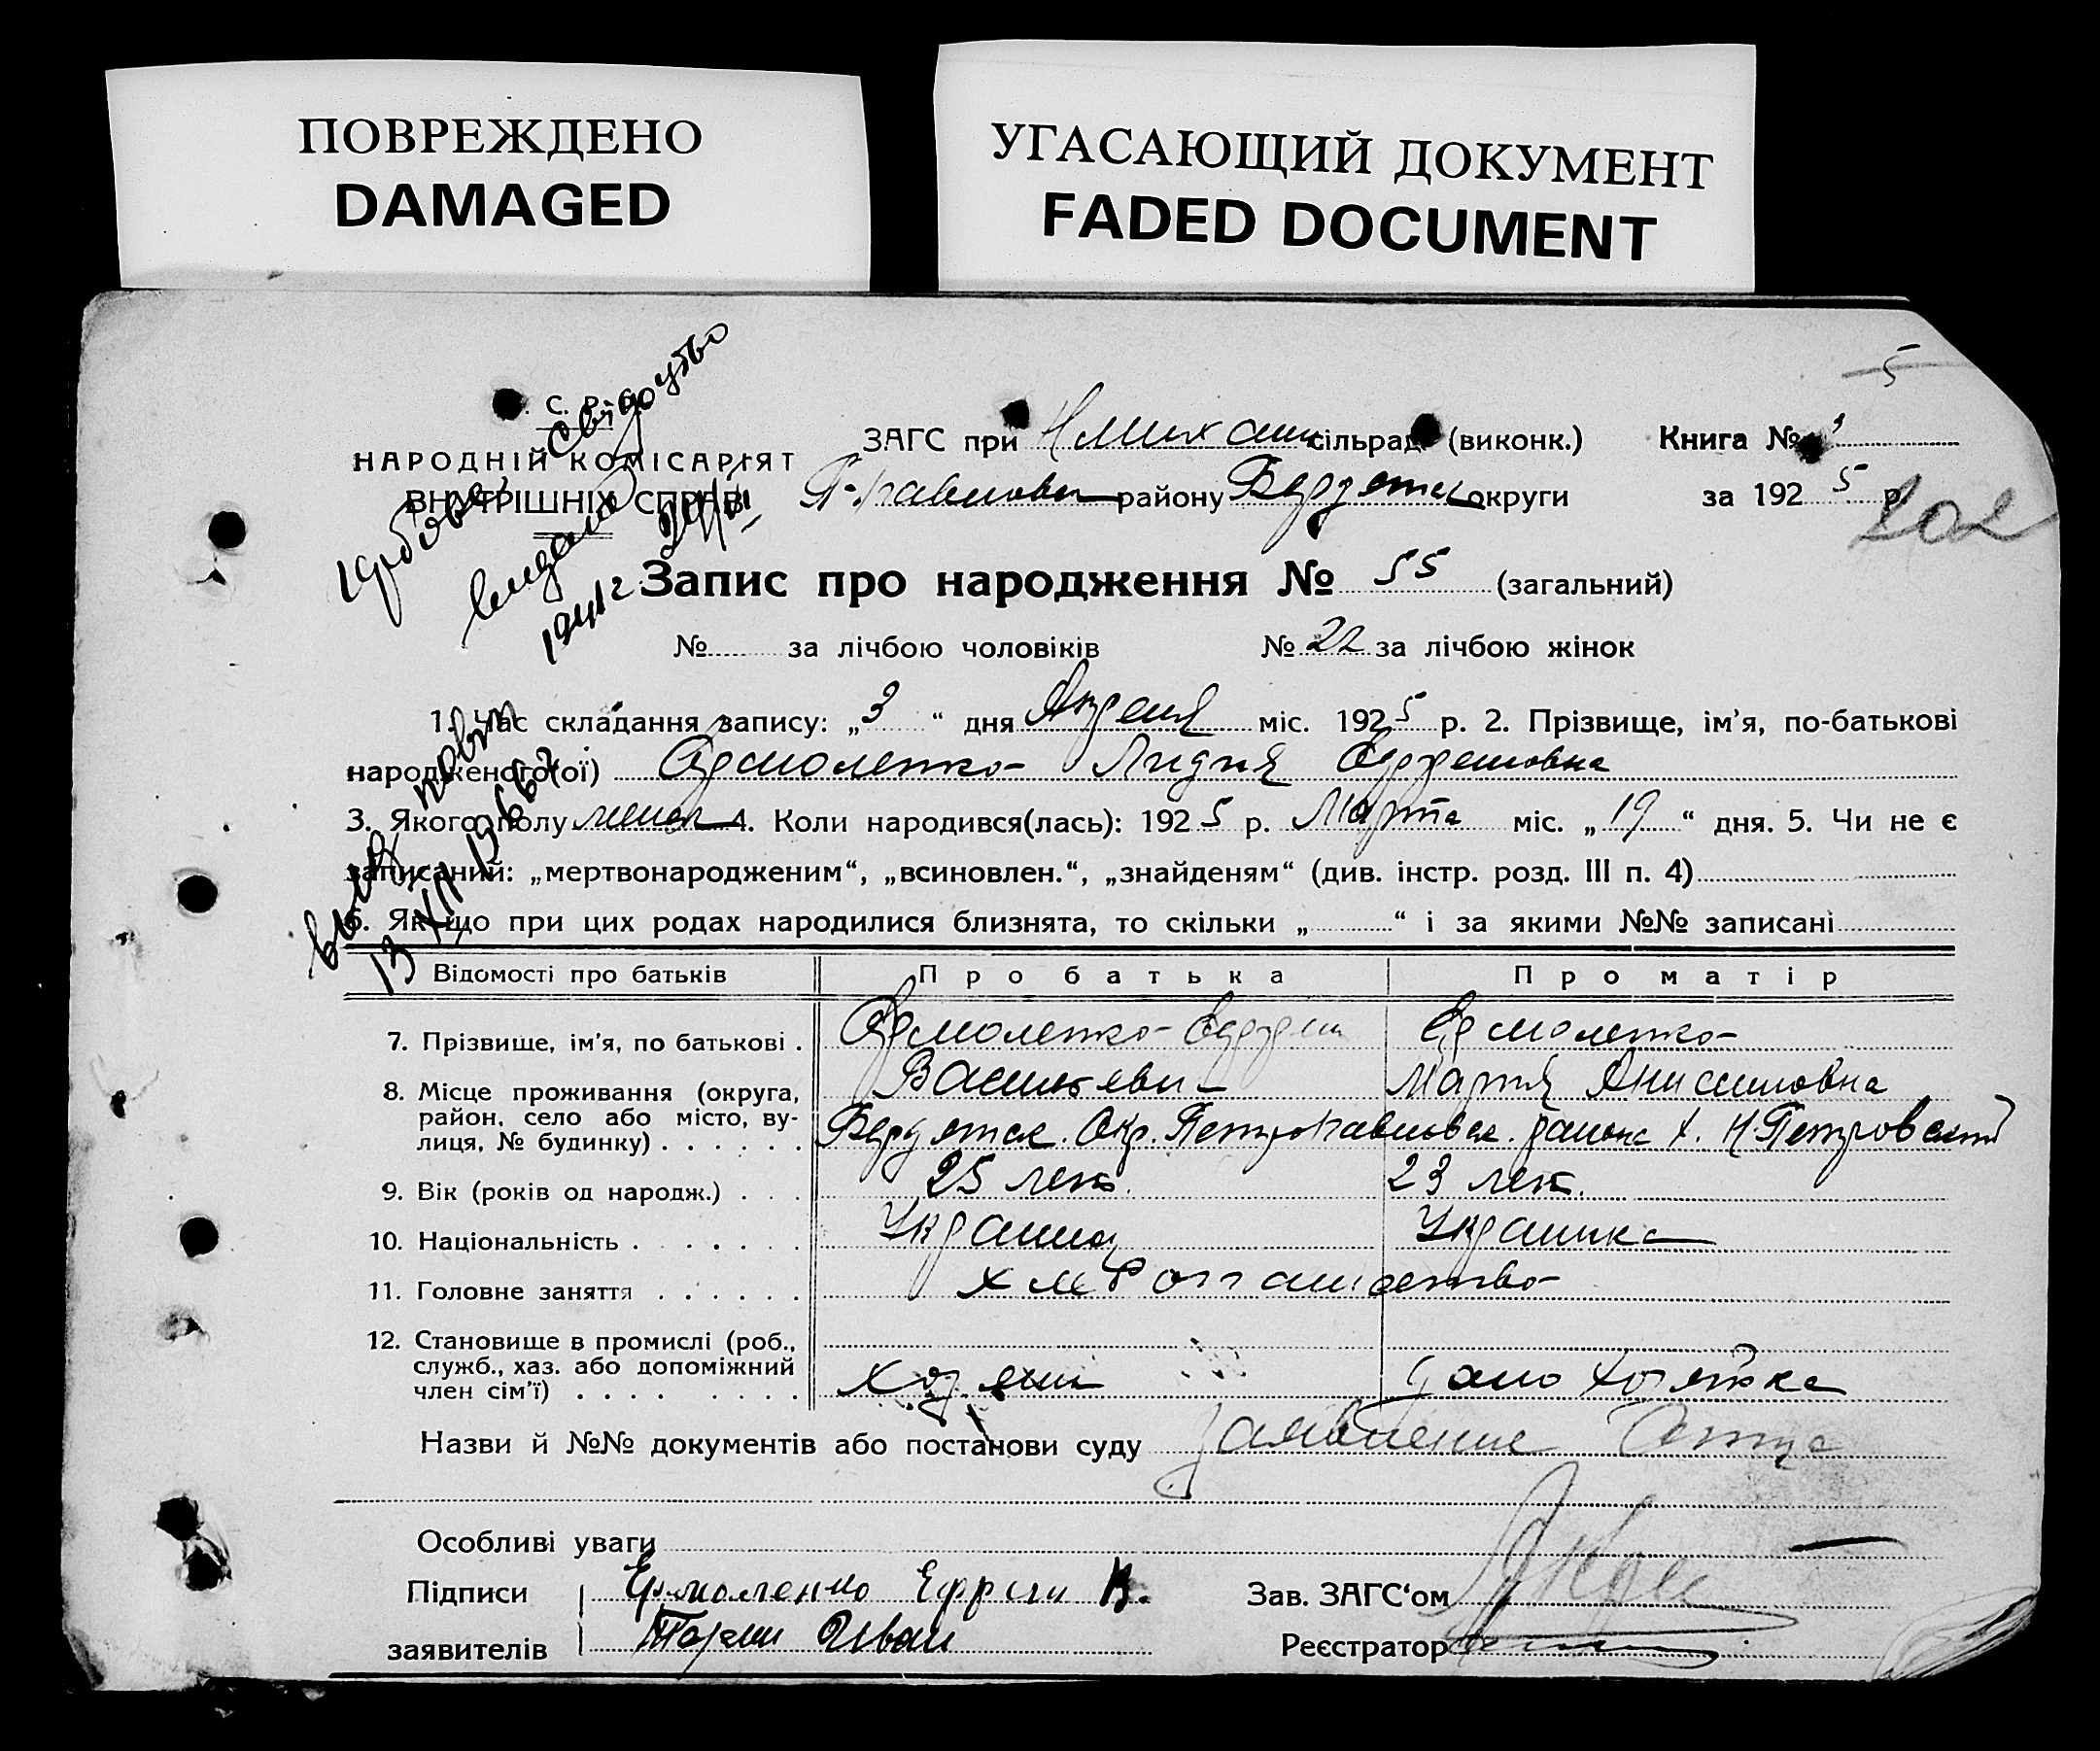 ПОВРЕЖДЕНО
DAMAGED
УГАСАЮЩИЙ ДОКУМЕНТ
FADED DOCUMENT
5
С. Р. Р.
НАРОДНІЙ КОМІСАРІЯТ
ВНУТРІШНІХ СПРАВ
свідоцтво
видано
1941 г
ЗАГС при сільрад (виконк.) Книга №
району округи за 192 5 р.
202
Запис про народження № 55 (загальний)
№ за лічбою чоловіків № 22 за лічбою жінок
1. Час складання запису: „ 3 “ дня Апреля міс. 192 5 р. 2. Прізвище, ім'я, по-батькові
народженого(ої) Ермоленко Лидия Ефремовна
3. Якого полу женск 4. Коли народився(лась): 192 5 р. Марта міс. „ 19 “ дня. 5. Чи не є
записаний: „мертвонародженим“, „всиновлен.“, „знайденям“ (див. інстр. розд. III п. 4)
6. Якщо при цих родах народилися близнята, то скільки „ “ і за якими №№ записані
13 XII 1966
Відомості про батьків Про батька Про матір
7. Прізвище, ім'я, по батькові . Ермоленко Ефрем Ермоленко
Васильевич Мария Анисимовна
8. Місце проживання (округа,
район, село або місто, ву-
лиця, № будинку) . . . . . . Бердянск. Окр. Петропавловск. района х. Н-Петровский
9. Вік (років од народж.) . . . 25 лет. 23 лет.
10. Національність . . . . . . . Украинец Украинка
11. Головне заняття . . . . . . хлебопашество
12. Становище в промислі (роб.,
служб., хаз. або допоміжний
член сім'ї) . . . . . . . . . хозяин домохозяйка
Назви й №№ документів або постанови суду заявление Отца
Особливі уваги —
Підписи Ермоленко Ефрем В. Зав. ЗАГС‘ом
заявителів Иван Реєстратор